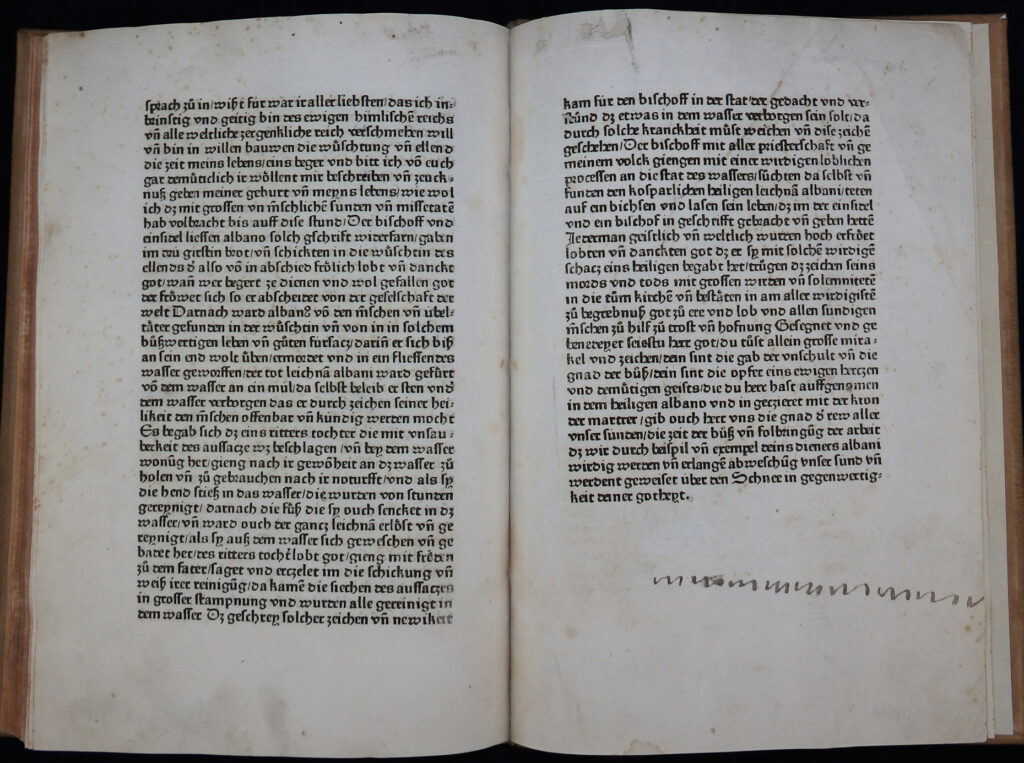 sprach zů in/wißt für war ir aller liebsten/das ich in⸗
brinstig vnd geitig bin des ewigen himlischen reichs
vñ alle weltliche zergenkliche reich verschmehen will
vñ bin in willen bauwen die wůschtung vñ ellend
die zeit meins lebens/eins beger vnd bitt ich võ euch
gar demůticlich ir wôllent mir beschreiben vñ zeuck⸗
nuß geben meiner geburt vñ meyns lebens/wie wol
ich dz mit grossen vn m̃schlichẽ sunden vñ missetatẽ
hab volbracht bis auff dise stund/Der bischoff vnd
einsidel liessen albano solch gschrift widerfarn/gaben
im dru girstin brot/vñ schickten in die wůschtin des
ellends d̕ also võ in abschied frôlich lobt vñ danckt
got/wañ wer begert ze dienen vnd wol gefallen got
der frôwet sich so er abscheidet von der gesellschaft der
welt Darnach ward albanꝰ võ den m̃schen vñ übel⸗
tâter gefunden in der wůschtin vñ von in in solchem
bůßwertigen leben vñ gůten fursacz/darin̄ er sich biß
an sein end wolt ůben/ermordet vnd in ein fliessendes
wasser geworffen/der tot leichnã albani ward gefürt
võ dem wasser an ein můl/da selbst beleib er sten vnd̕
dem wasser verborgen das er durch zeichen seiner hei⸗
likeit den m̃schen offenbar vñ kündig werden mocht
Es begab sich dz eins ritters tochter die mit vnsau⸗
berkeit des aussacze wz beschlagen/vñ bey dem wasser
wonũg het/gieng nach ir gewôheit an dz wasser zů
holen vñ zů gebrauchen nach ir noturfft/vnd als sy
die hend stieß in das wasser/die wurden von stunden
gereynigt/darnach die fůß die sy ouch sencket in dz
wasser/vñ ward ouch der gancz leichnã erlôst vñ ge
reynigt/als sy auß dem wasser sich geweschen vñ ge
badet het/des ritters tocht̕ lobt got/gieng mit frêden
zů dem fater/saget vnd erczelet im die schickung vñ
weiß irer reinigũg/da kamẽ die siechen des aussaczes
in grosser stampnung vnd wurden alle gereinigt in
dem wasser Dz geschrey solcher zeichen vñ newikeit
kam für den bischoff in der stat/der gedacht vnd ver⸗
stůnd dz etwas in dem wasser verborgen sein solt/da
durch solche kranckheit můst weichen vñ dise zeichẽ
geschehen/Der bischoff mit aller priesterschaft vñ ge
meinem volck giengen mit einer wirdigen loblichen
processen an die stat des wassers/sůchten da selbst vñ
funden den kosparlichen heiligen leichnã albani/teten
auf ein bichsen vnd lasen sein leben/dz im der einsidel
vnd ein bischof in geschrifft gebracht vñ geben hettẽ
Jederman geistlich vñ weltlich wurden hoch erfrôet
lobten vñ danckten got dz er sy mit solchẽ wirdigẽ
schacz eins heiligen begabt het/trůgen dz zeichen seins
mords vnd tods mit grossen wirden vñ solemnitetẽ
in die tům kirchẽ vñ bestâten in am aller wirdigistẽ
zů begrebnuß got zů ere vnd lob vnd allen sündigen
m̃schen zů hilf zů trost vñ hofnung Gesegnet vnd ge
benedeyet seiestu herr got/du tůst allein grosse mira⸗
kel vnd zeichen/dein sint die gab der vnschult vñ die
gnad der bůß/dein sint die opfer eins ewigen herczen
vnd demůtigen geists/die du herr hast auffgenomen
in dem heiligen albano vnd in gezieret mit der kron
der martrer/gib ouch herr vns die gnad d̕ rew aller
vnser sunden/die zeit der bůß vñ folbringũg der arbeit
dz wir durch beispil vñ exempel deins dieners albani
wirdig werden vñ erlangẽ abweschũg vnser sund vñ
werdent geweiset über den Schnee in gegenwertig⸗
keit deiner gotheyt.